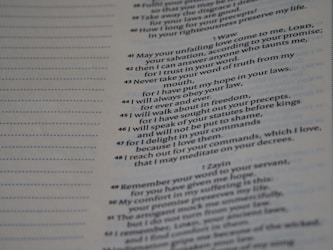 so that you may be
39 Take away the disgrace I
for your laws are good.
40 How I long for your precepts!
in your righteousness preserve my life.
ו Waw
41 May your unfailing love come to me, LORD,
your salvation, according to your promise;
42 then I can answer anyone who taunts me,
for I trust in your word.
43 Never take your word of truth from my
mouth,
for I have put my hope in your laws.
44 I will always obey your law,
for ever and ever.
45 I will walk about in freedom,
for I have sought out your precepts.
46 I will speak of your statutes before kings
and will not be put to shame,
47 for I delight in your commands
because I love them.
48 I reach out for your commands, which I love,
that I may meditate on your decrees.
ז Zayin
49 Remember your word to your servant,
for you have given me hope.
50 My comfort in my suffering is this:
your promise preserves my life.
51 The arrogant mock me unmercifully,
but I do not turn from your law.
52 I remember, LORD, your ancient laws,
and I find comfort in them.
of the wicked